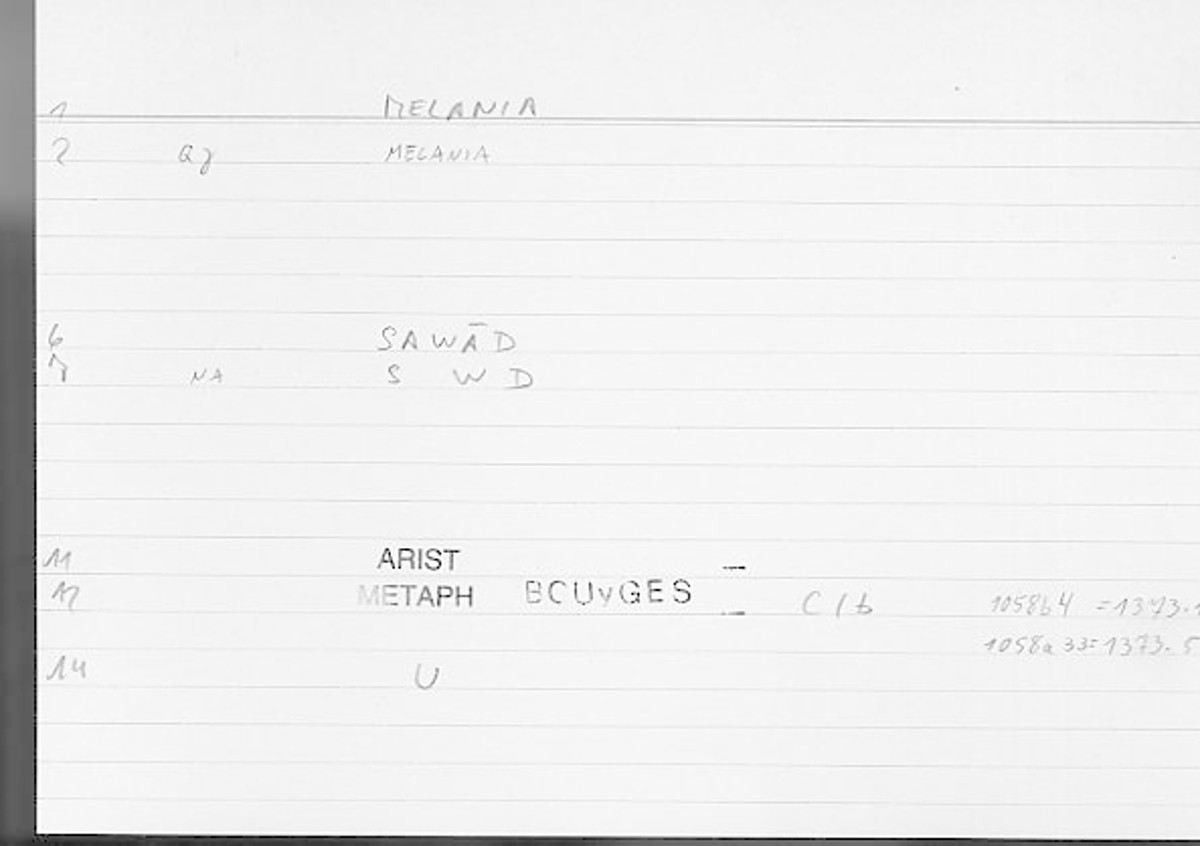 1 MELANIA
2 Qg MELANIA
6 SAWĀD
7 NA S W D
11 ARIST
12 METAPH BCUyGES C I b 1058b4 =1373.1
1058a 33=1373.5
14 U